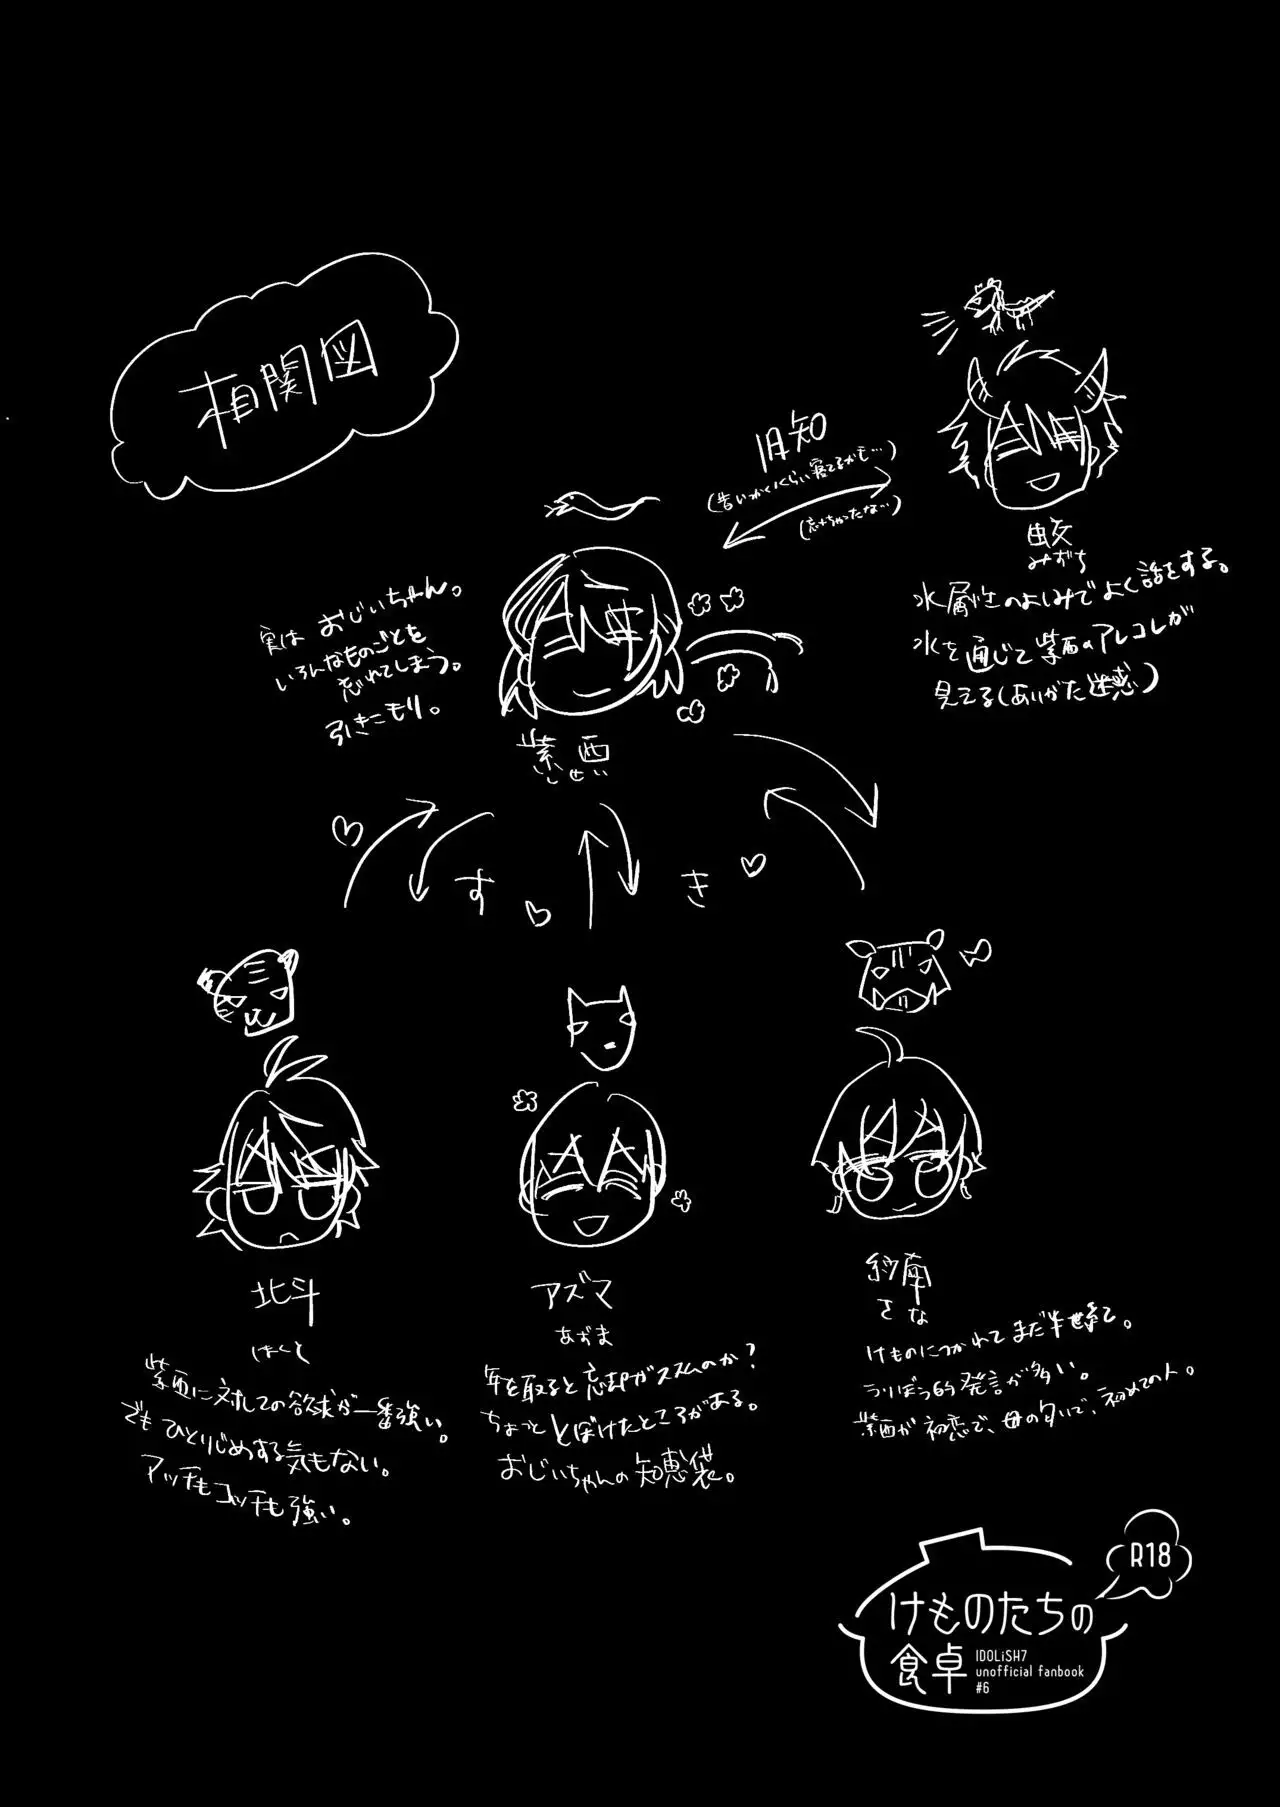 相関図
旧知
(昔いっかくらい寝てるかも…)
(忘れちゃったな…)
蛟
みずち
水属性のよしみでよく話をする。
水を通じて紫西のアレコレが
見えてる(ありがた迷惑)
実は おじいちゃん。
いろんなものごとを
忘れてしまう。
引きこもり。
紫西
しせい
す
き
北斗
ほくと
紫西に対しての欲求が一番強い。
でもひとりじめする気もない。
アッチもコッチも強い。
アズマ
あずま
年を取ると忘却がススムのか?
ちょっと とぼけたところがある。
おじいちゃんの知恵袋。
紗南
さな
けものにつかれてまだ半世紀。
うりぼう的発言が多い。
紫西が初恋で、母の匂いで、初めての人。
R18
けものたちの
食卓
IDOLiSH7
unofficial fanbook
#6